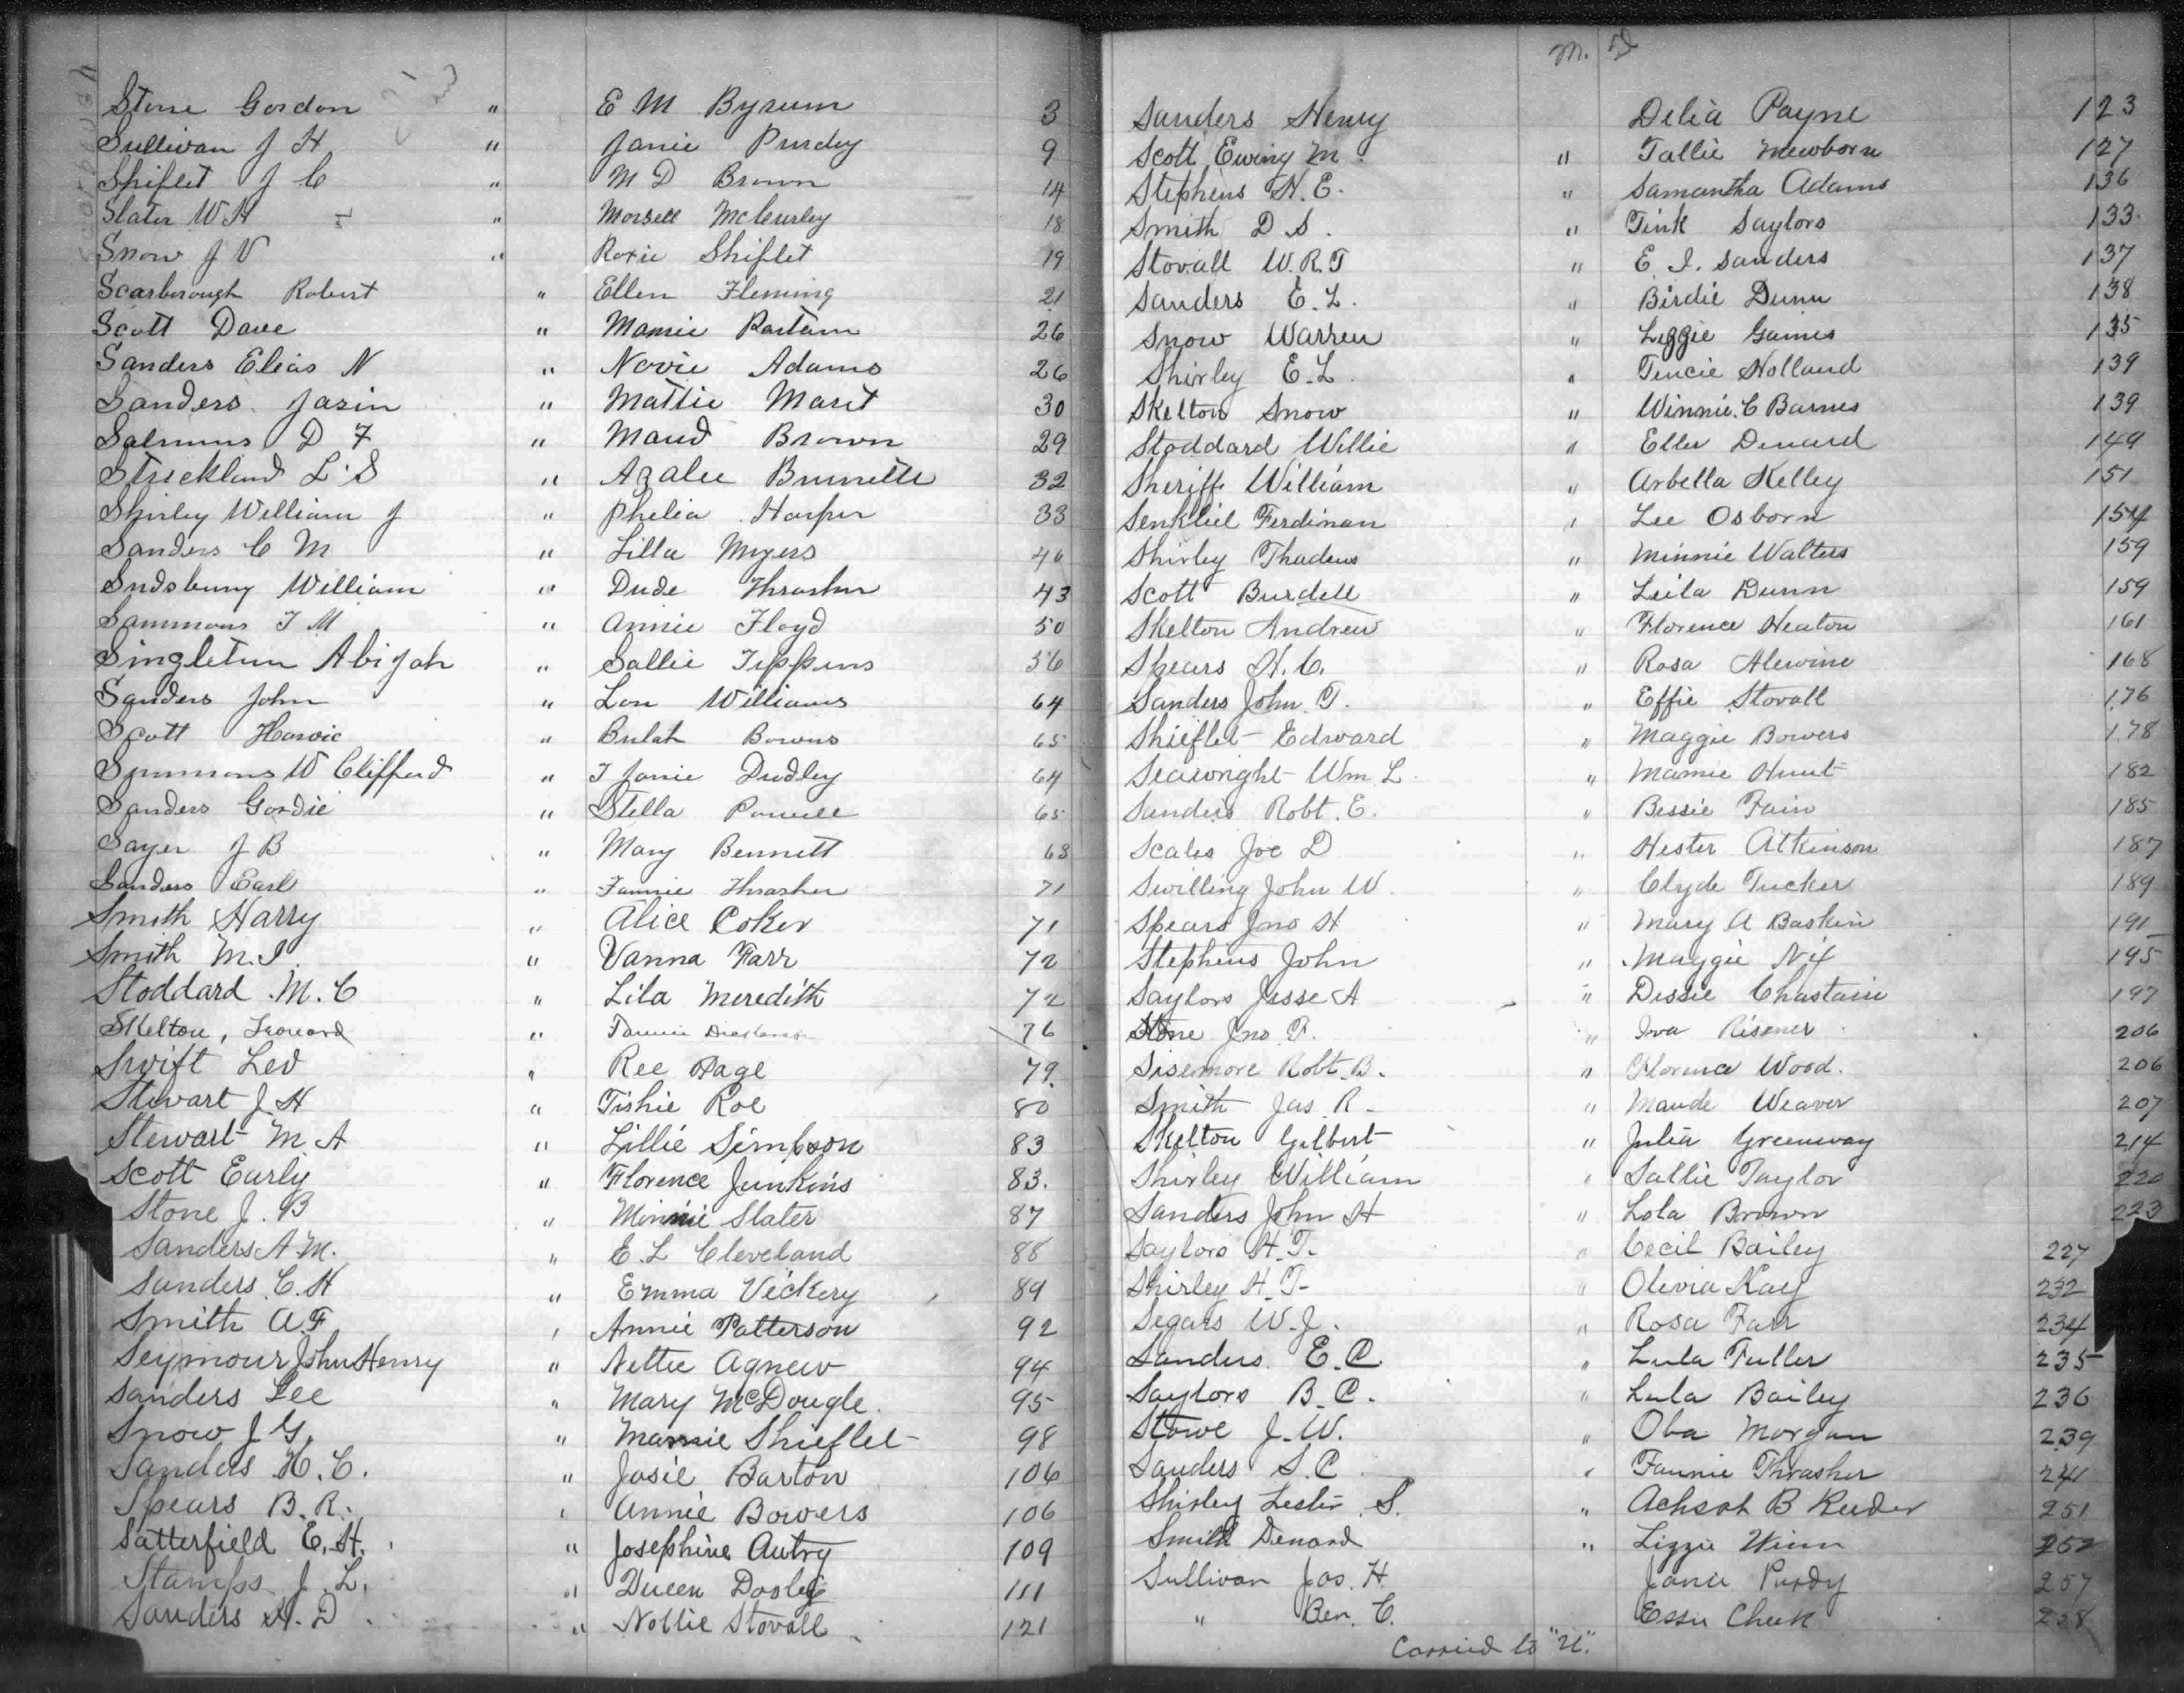 Stone Gordon " E M Byrum 3
Sullivan J H " Janie Purdey 9
Shiflet J C " M D Brown 14
Slater W H " Morsell McCurley 18
Snow J V " Roxie Shiflet 19
Scarborough Robert " Ellen Fleming 21
Scott Dave " Mamie Partain 26
Sanders Elias N " Novie Adams 26
Sanders Jasin " Mattie Maret 30
Salmuns D F " Maud Brown 29
Strickland L. S " Azalee Brunette 32
Shirley William J " Phelia Harper 33
Sanders C M " Lilla Myers 40
Sudsbury William " Dude Thrasher 43
Sammons T M " Annie Floyd 50
Singletun Abijah " Sallie Tippins 56
Sanders John " Lon Williams 64
Scott Harvie " Bulah Bowers 65
Simmons W Clifford " T Janie Dudley 64
Sanders Gordie " Stella Powell 65
Sayer J B " Mary Bennett 63
Sanders Earl " Fannie Thrasher 71
Smith Harry " Alice Coker 71
Smith M. J. " Vanna Farr 72
Stoddard M. C " Lila Meredith 72
Skelton, Leonard " Fannie Dickerson 76
Swift Led " Ree Page 79
Stewart J. H " Tishie Roe 80
Stewart M A " Lillie Simpson 83
Scott Early " Florence Junkins 83.
Stone J. B " Minnie Slater 87
Sanders A. M. " E. L Cleveland 88
Sanders C. H " Emma Vickery 89
Smith A. F " Annie Patterson 92
Seymour John Henry " Nettie Agnew 94
Sanders Lee " Mary McDougle. 95
Snow J G. " Mamie Shieflet 98
Sanders H. C. " Josie Barton 106
Spears B. R. " Annie Bowers 106
Satterfield E. H. " Josephine Autry 109
Stamps J. L. " Queen Dooley 111
Sanders A. D. " Nollie Stovall 121
M. D
Sanders Henry Delia Payne 123
Scott Ewing M. " Tallie Mewborn 127
Stephens H. E. " Samantha Adams 136
Smith D S. " Tink Saylors 133
Stovall W. R. T " E. I. Sanders 137
Sanders E. L. " Birdie Dunn 138
Snow Warren " Lizzie Gaines 135
Shirley E. L. " Tencie Holland 139
Skelton Snow " Winnie C Barnes 139
Stoddard Willie " Eller Denard 149
Sheriff William " Arbella Kelley 151
Senkbiel Ferdinan " Lee Osborn 154
Shirley Thadeus " Minnie Walters 159
Scott Burdell " Leila Dunn 159
Skelton Andrew " Florence Heaton 161
Spears H. C. " Rosa Alewine 168
Sanders John T. " Effie Stovall 176
Shieflet Edward " Maggie Bowers 178
Searwright Wm L. " Mamie Hunt 182
Sanders Robt. E. " Bessie Fain 185
Scales Joe D " Hester Atkinson 187
Swilling John W. " Clyde Tucker 189
Spears Jno H " Mary A Baskin 191
Stephens John " Maggie Nix 195
Saylors Jesse A " Dessie Chastain 197
Stone Jno F. " Iva Risener 206
Sisemore Robt. B. " Florence Wood. 206
Smith Jas R. " Maude Weaver 207
Skelton Gilbert " Julia Greenway 214
Shirley William " Sallie Taylor 220
Sanders John H " Lola Brown 223
Saylors H. T. " Cecil Bailey 227
Shirley H. T. " Olivia Kay 232
Segars W. J. " Rosa Farr 234
Sanders E. C. " Lula Fuller 235
Saylors B. C. " Lula Bailey 236
Stowe J. W. " Oba Morgan 239
Sanders S. C " Fannie Thrasher 241
Shirley Lester S. " Achsah B Reeder 251
Smith Denard " Lizzie Winn 252
Sullivan Jas. H. Janie Purdy 257
" Ben. C. Essie Cheek 258
Carried to "U".